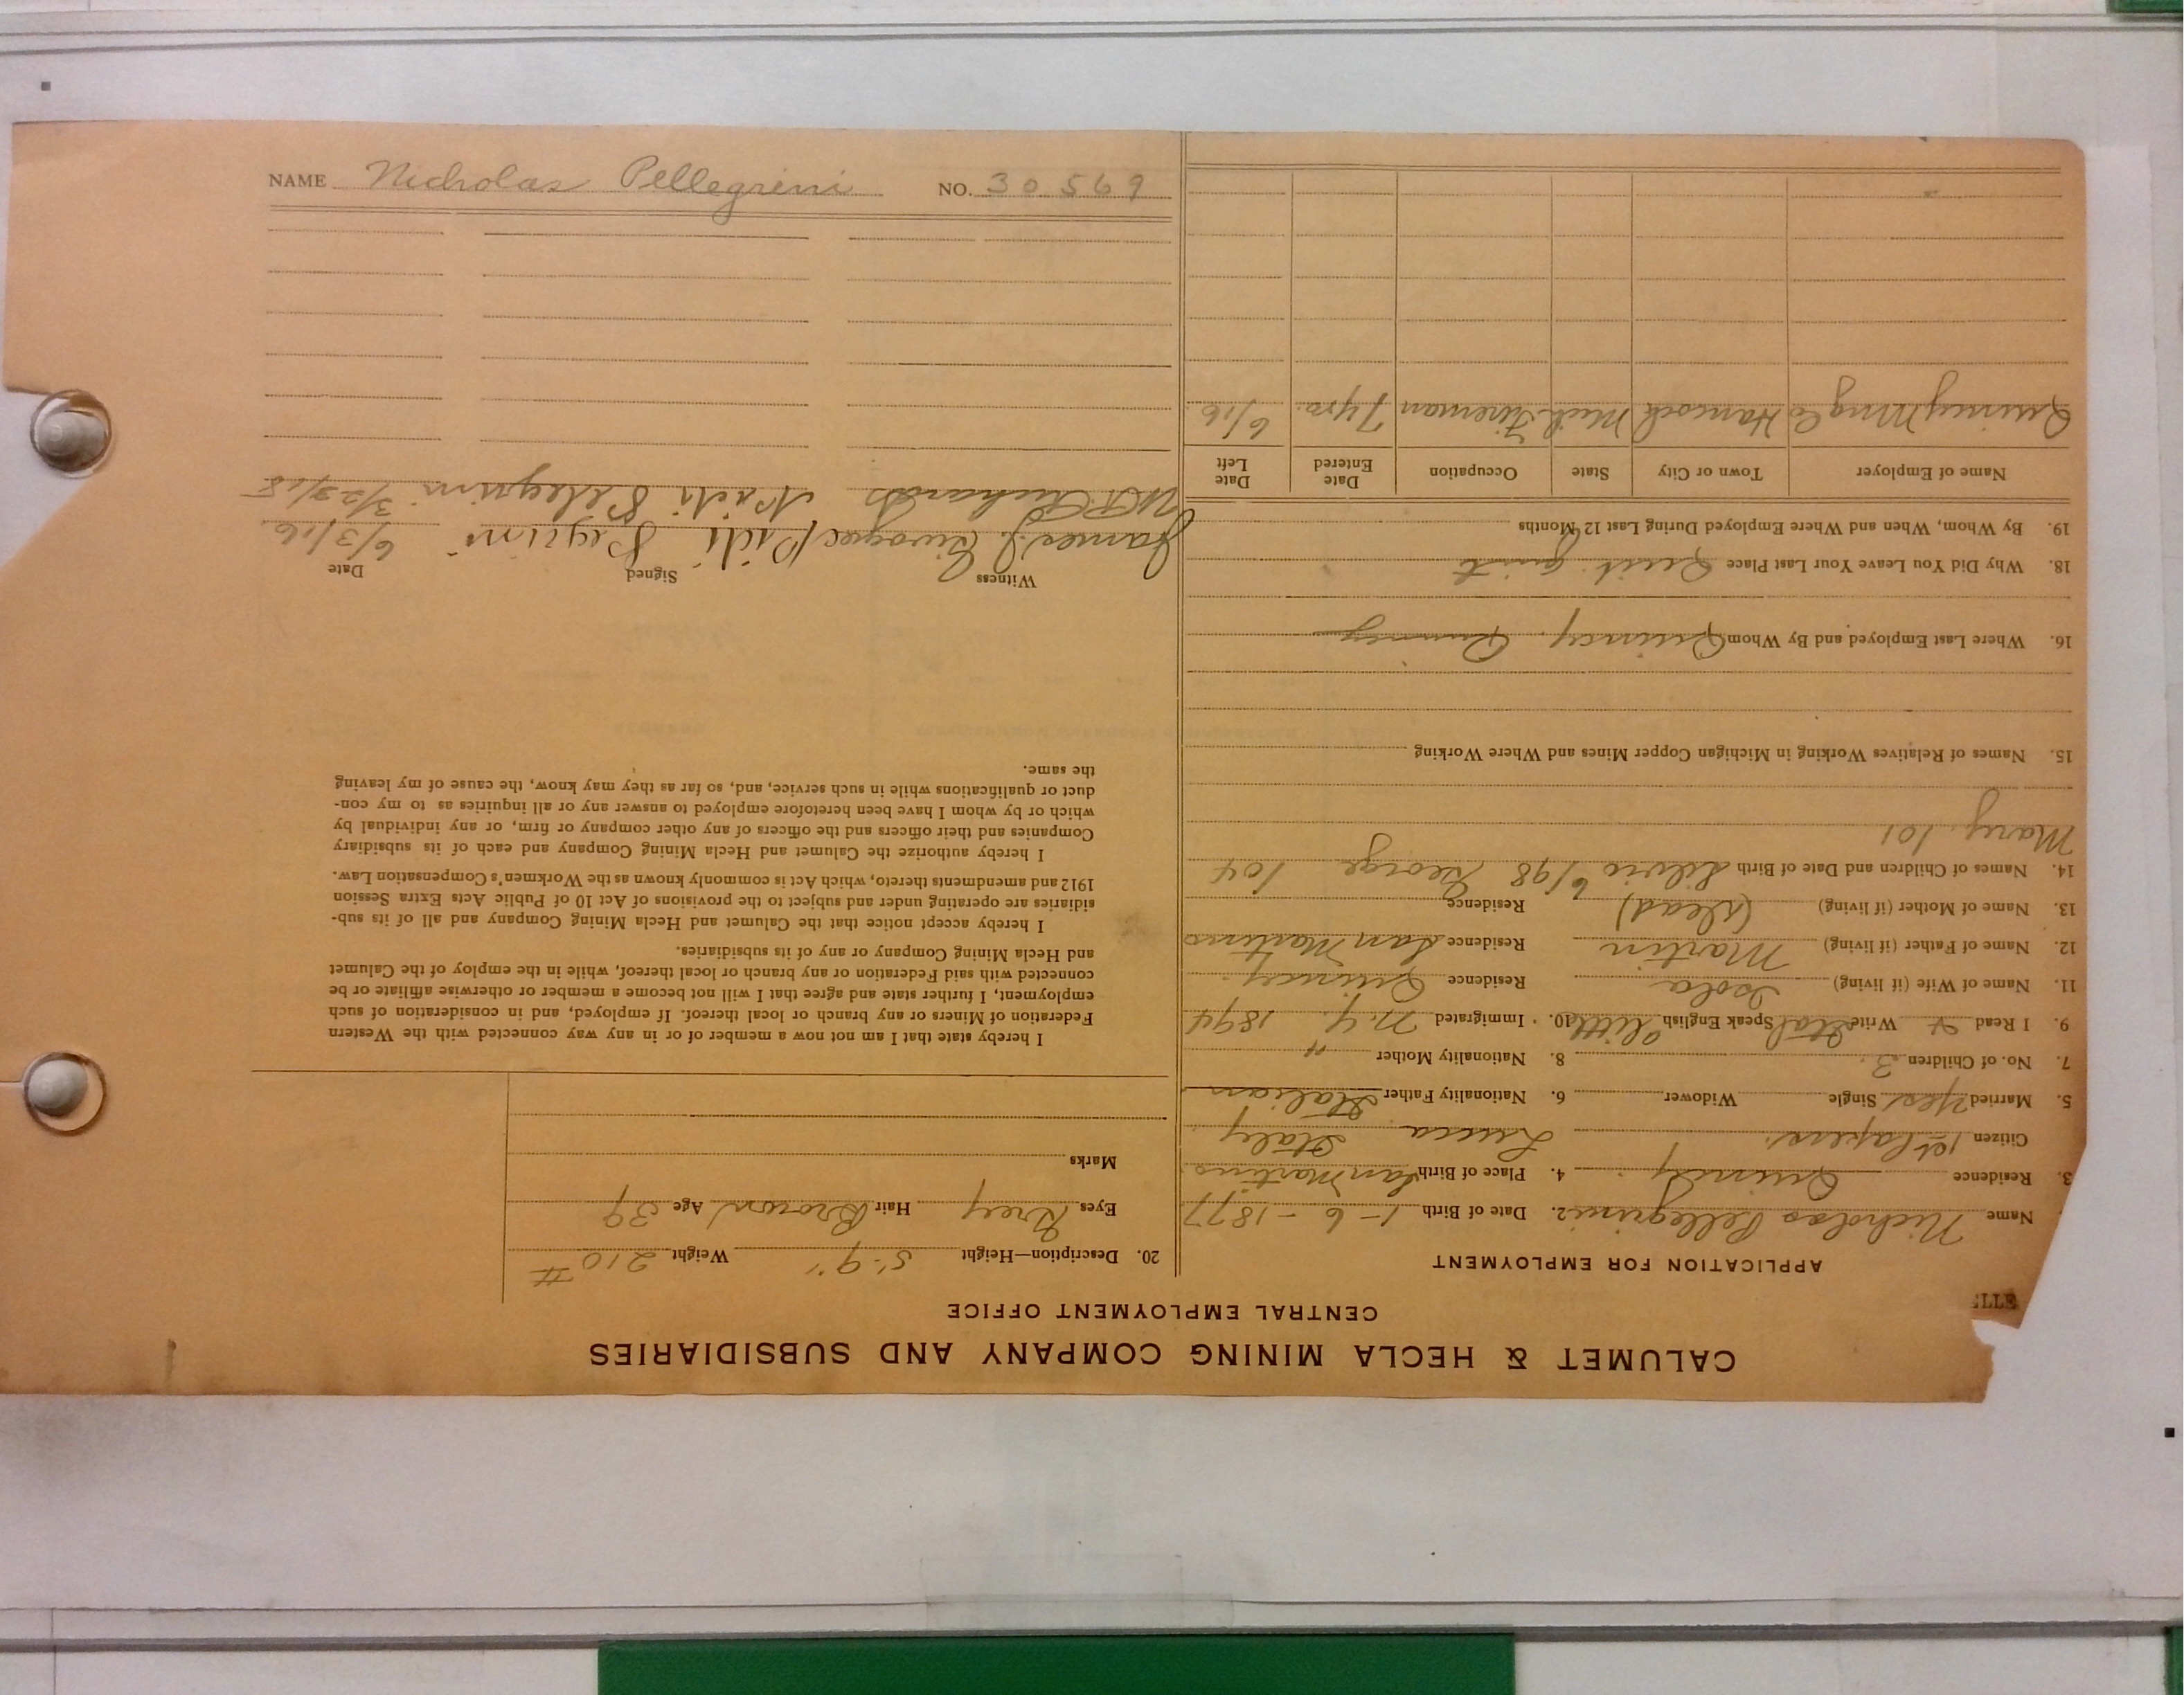 CALUMET & HECLA MINING COMPANY AND SUBSIDIARIES
CENTRAL EMPLOYMENT OFFICE
APPLICATION FOR EMPLOYMENT
Name Nicholas Pellegrini 2. Date of Birth 1-6-1877
3. Residence Quincy 4. Place of Birth San Martino
Citizen 1st Papers. Lucca Italy
5. Married Yes Single Widower 6. Nationality Father Italian
7. No. of Children 3. 8. Nationality Mother "
9. I Read & Write Ital Speak English little 10. Immigrated N.Y. 1894
11. Name of Wife (if living) Isola Residence Quincy.
12. Name of Father (if living) Martin Residence San Martino
13. Name of Mother (if living) (dead) Residence
14. Names of Children and Date of Birth Silvio 6/98 George 104
Mary 101
15. Names of Relatives Working in Michigan Copper Mines and Where Working
16. Where Last Employed and By Whom Quincy. Quincy
18. Why Did You Leave Your Last Place Quit quit
19. By Whom, When and Where Employed During Last 12 Months
Name of Employer Town or City State Occupation Date Entered Date Left
Quincy Mng Co Hancock Mich Fireman 7 yrs. 6/16
20. Description—Height 5'-9" Weight 210 #
Eyes Grey Hair Brown Age 39
Marks
I hereby state that I am not now a member of or in any way connected with the Western
Federation of Miners or any branch or local thereof. If employed, and in consideration of such
employment, I further state and agree that I will not become a member or otherwise affiliate or be
connected with said Federation or any branch or local thereof, while in the employ of the Calumet
and Hecla Mining Company or any of its subsidiaries.
I hereby accept notice that the Calumet and Hecla Mining Company and all of its sub-
sidiaries are operating under and subject to the provisions of Act 10 of Public Acts Extra Session
1912 and amendments thereto, which Act is commonly known as the Workmen's Compensation Law.
I hereby authorize the Calumet and Hecla Mining Company and each of its subsidiary
Companies and their officers and the officers of any other company or firm, or any individual by
which or by whom I have been heretofore employed to answer any or all inquiries as to my con-
duct or qualifications while in such service, and, so far as they may know, the cause of my leaving
the same.
Witness Signed Date
James J. 6/3/16
Richards 3/23/18
NAME Nicholas Pellegrini NO. 30569